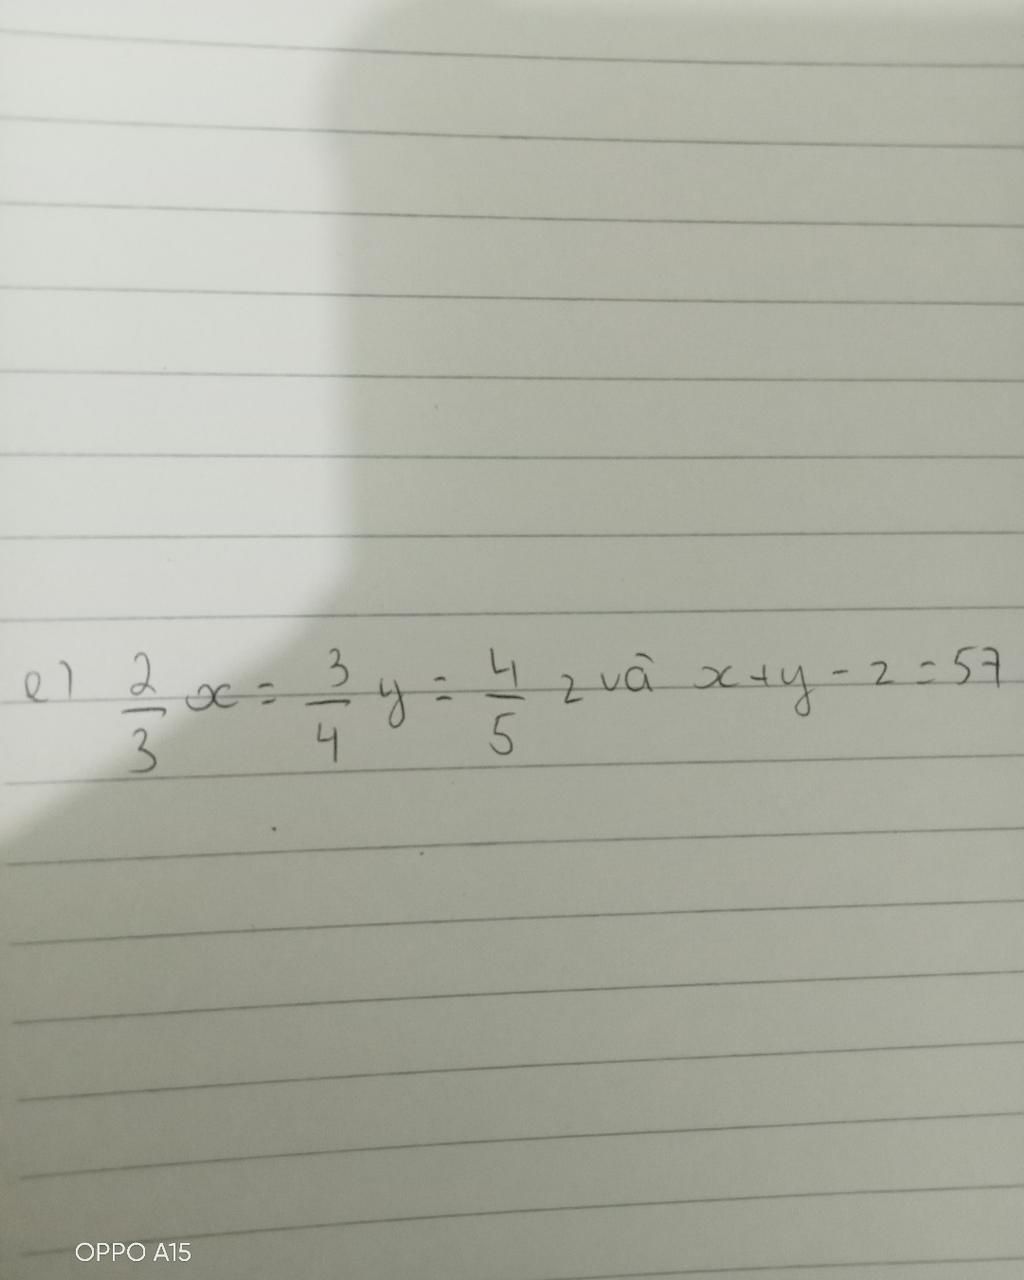 e) 2/3 x = 3/4 y = 4/5 z và x+y-z=57
OPPO A15